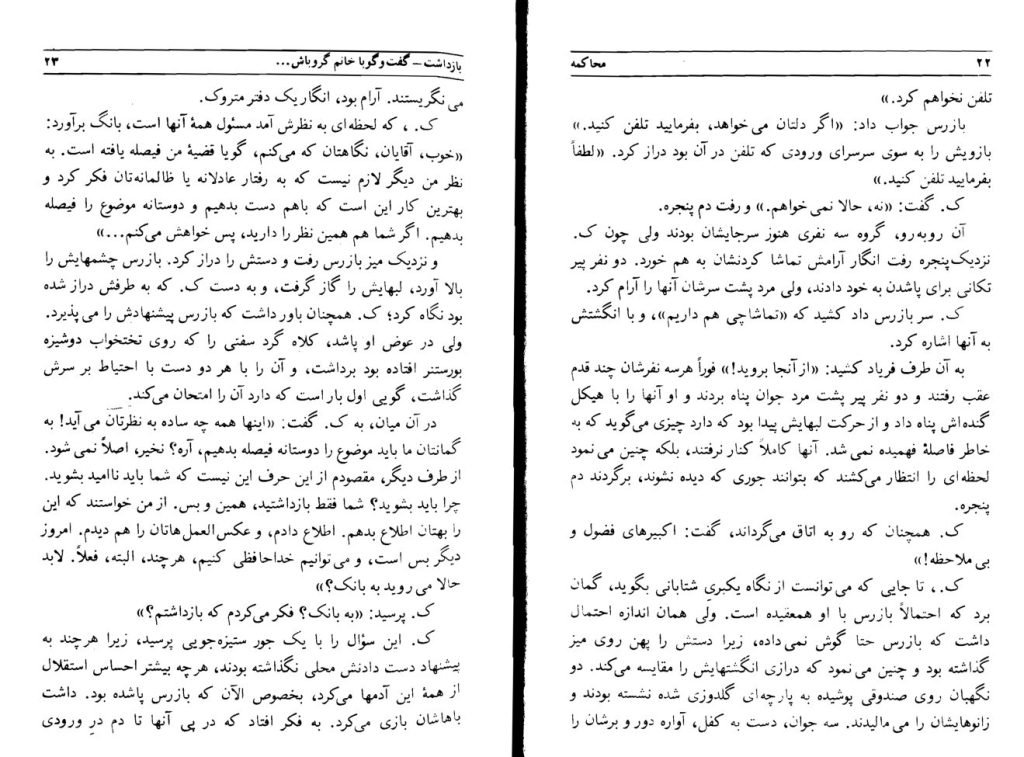 ۲۲ محاکمه
تلفن نخواهم کرد.»
بازرس جواب داد: «اگر دلتان می‌خواهد، بفرمایید تلفن کنید.»
بازویش را به سوی سرسرای ورودی که تلفن در آن بود دراز کرد. «لطفاً
بفرمایید تلفن کنید.»
ک. گفت: «نه، حالا نمی‌خواهم.» و رفت دم پنجره.
آن روبه‌رو، گروه سه نفری هنوز سرجایشان بودند ولی چون ک.
نزدیک پنجره رفت انگار آرامش تماشا کردنشان به هم خورد. دو نفر پیر
تکانی برای پاشدن به خود دادند، ولی مرد پشت سرشان آنها را آرام کرد.
ک. سر بازرس داد کشید که «تماشاچی هم داریم»، و با انگشتش
به آنها اشاره کرد.
به آن طرف فریاد کشید: «از آنجا بروید!» فوراً هرسه نفرشان چند قدم
عقب رفتند و دو نفر پیر پشت مرد جوان پناه بردند و او آنها را با هیکل
گنده‌اش پناه داد و از حرکت لبهایش پیدا بود که دارد چیزی می‌گوید که به
خاطر فاصلهٔ فهمیده نمی‌شد. آنها کاملاً کنار نرفتند، بلکه چنین می‌نمود
لحظه‌ای را انتظار می‌کشند که بتوانند جوری که دیده نشوند، برگردند دم
پنجره.
ک. همچنان که رو به اتاق می‌گرداند، گفت: اکبیرهای فضول و
بی‌ملاحظه!»
ک.، تا جایی که می‌توانست از نگاه یکبریِ شتابانی بگوید، گمان
برد که احتمالاً بازرس با او همعقیده است. ولی همان اندازه احتمال
داشت که بازرس حتا گوش نمی‌داده، زیرا دستش را پهن روی میز
گذاشته بود و چنین می‌نمود که درازی انگشتهایش را مقایسه می‌کند. دو
نگهبان روی صندوقی پوشیده به پارچه‌ای گلدوزی شده نشسته بودند و
زانوهایشان را می‌مالیدند. سه جوان، دست به کفل، آواره دور و برشان را
بازداشت – گفت‌وگو با خانم گروباش... ۲۳
می‌نگریستند. آرام بود، انگار یک دفتر متروک.
ک.، که لحظه‌ای به نظرش آمد مسئول همهٔ آنها است، بانگ برآورد:
«خوب، آقایان، نگاهتان که می‌کنم، گویا قضیهٔ من فیصله یافته است. به
نظر من دیگر لازم نیست که به رفتار عادلانه یا ظالمانه‌تان فکر کرد و
بهترین کار این است که باهم دست بدهیم و دوستانه موضوع را فیصله
بدهیم. اگر شما هم همین نظر را دارید، پس خواهش می‌کنم...»
و نزدیک میز بازرس رفت و دستش را دراز کرد. بازرس چشمهایش را
بالا آورد، لبهایش را گاز گرفت، و به دست ک. که به طرفش دراز شده
بود نگاه کرد؛ ک. همچنان باور داشت که بازرس پیشنهادش را می‌پذیرد.
ولی در عوض او پاشد، کلاه گرد سفتی را که روی تختخواب دوشیزه
بورستنر افتاده بود برداشت، و آن را با هر دو دست با احتیاط بر سرش
گذاشت، گویی اول بار است که دارد آن را امتحان می‌کند.
در آن میان، به ک. گفت: «اینها همه چه ساده به نظرتان می‌آید! به
گمانتان ما باید موضوع را دوستانه فیصله بدهیم، آره؟ نخیر، اصلاً نمی‌شود.
از طرف دیگر، مقصودم از این حرف این نیست که شما باید ناامید بشوید.
چرا باید بشوید؟ شما فقط بازداشتید، همین و بس. از من خواستند که این
را بهتان اطلاع بدهم. اطلاع دادم، و عکس‌العمل‌هاتان را هم دیدم. امروز
دیگر بس است، و می‌توانیم خداحافظی کنیم، هرچند، البته، فعلاً. لابد
حالا می‌روید به بانک؟»
ک. پرسید: «به بانک؟ فکر می‌کردم که بازداشتم؟»
ک. این سؤال را با یک جور ستیزه‌جویی پرسید، زیرا هرچند به
پیشنهاد دست دادنش محلی نگذاشته بودند، هرچه بیشتر احساس استقلال
از همهٔ این آدمها می‌کرد، بخصوص الآن که بازرس پاشده بود. داشت
باهاشان بازی می‌کرد. به فکر افتاد که در پی آنها تا دم در ورودی